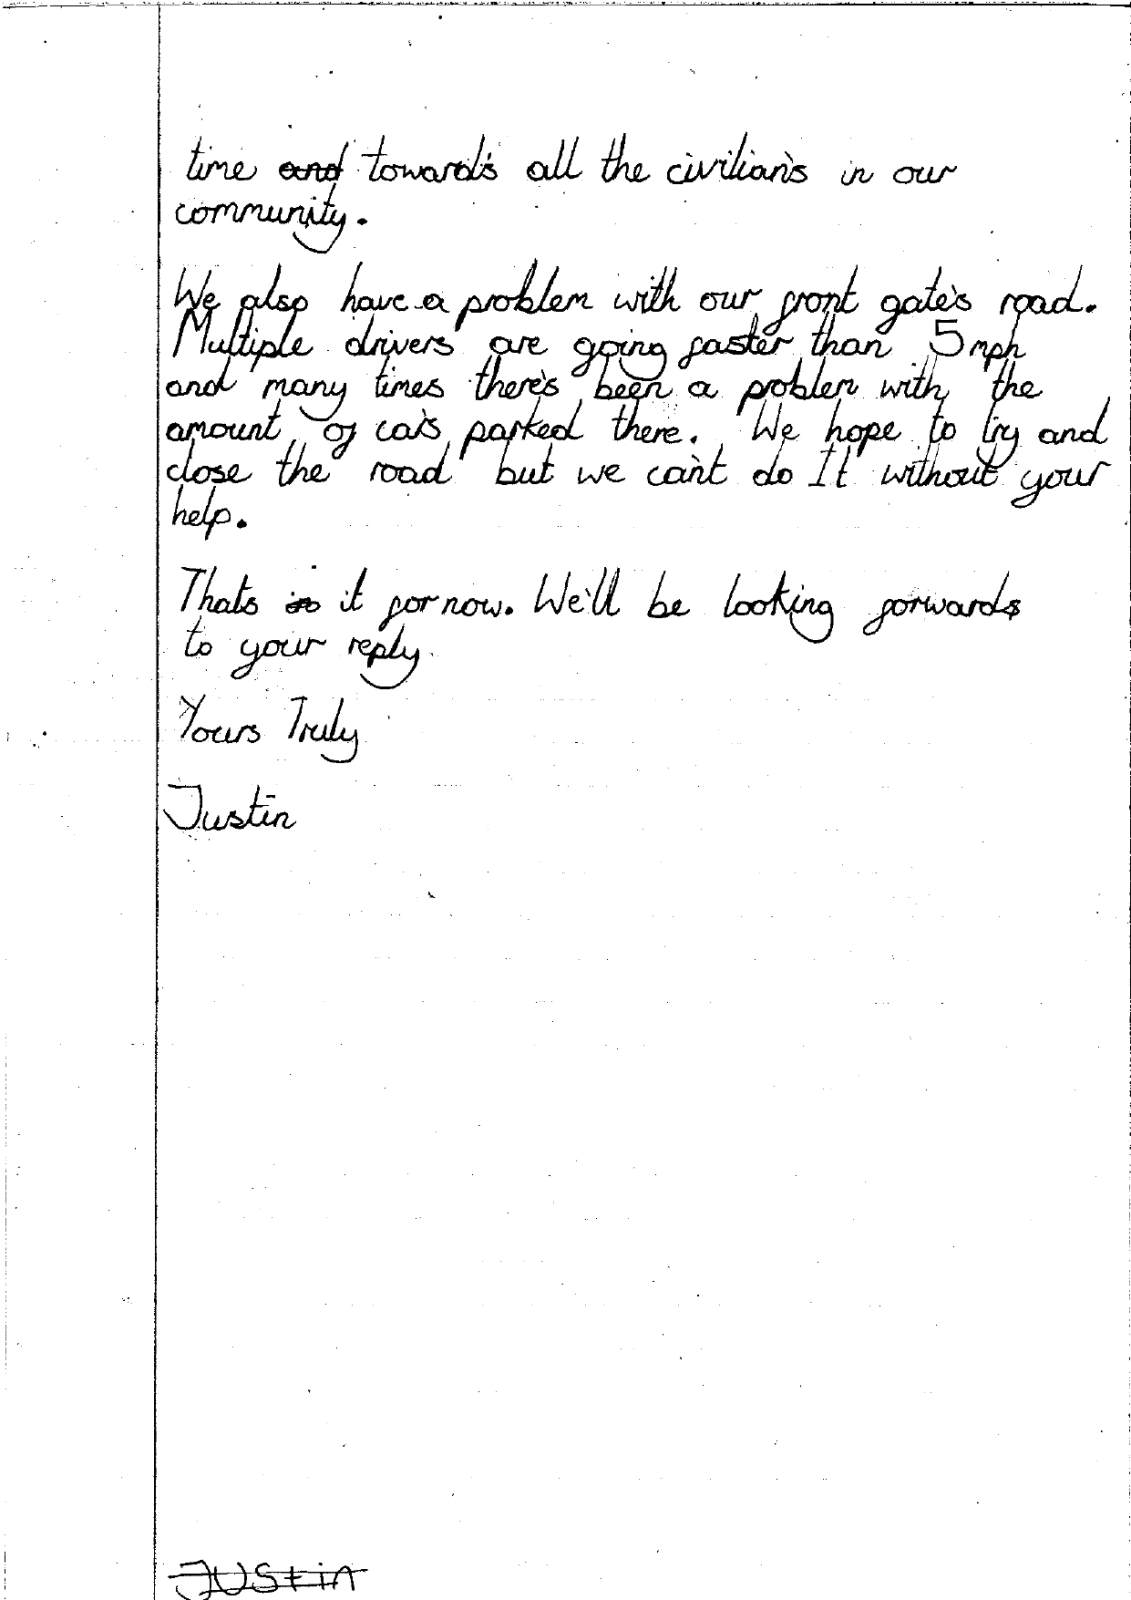 time and toward's all the civilian's in our
community.
We also have a problem with our front gate's road.
Multiple drivers are going faster than 5mph
and many times there's been a problem with the
amount of cars parked there. We hope to try and
close the road but we can't do It without your
help.
Thats is it for now. We'll be looking forwards
to your reply.
Yours Truly
Justin
Justin